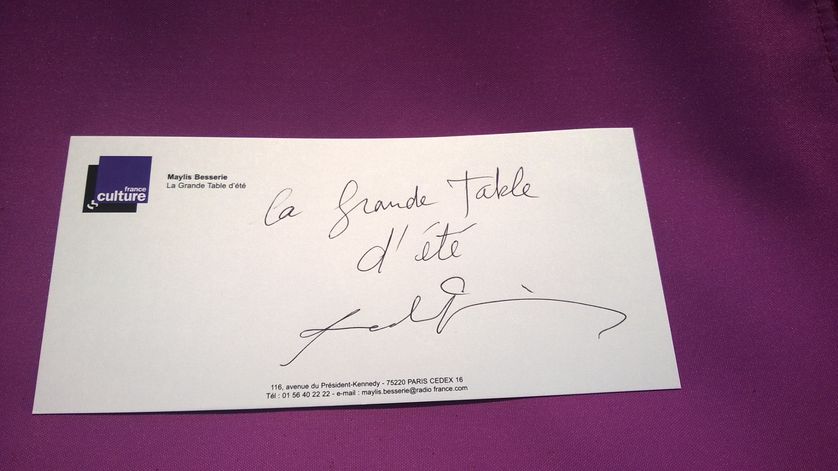 france
culture
Maylis Besserie
La Grande Table d'été
La Grande Table
d'été
116, avenue du Président-Kennedy - 75220 PARIS CEDEX 16
Tél : 01 56 40 22 22 - e-mail : maylis.besserie@radio france.com